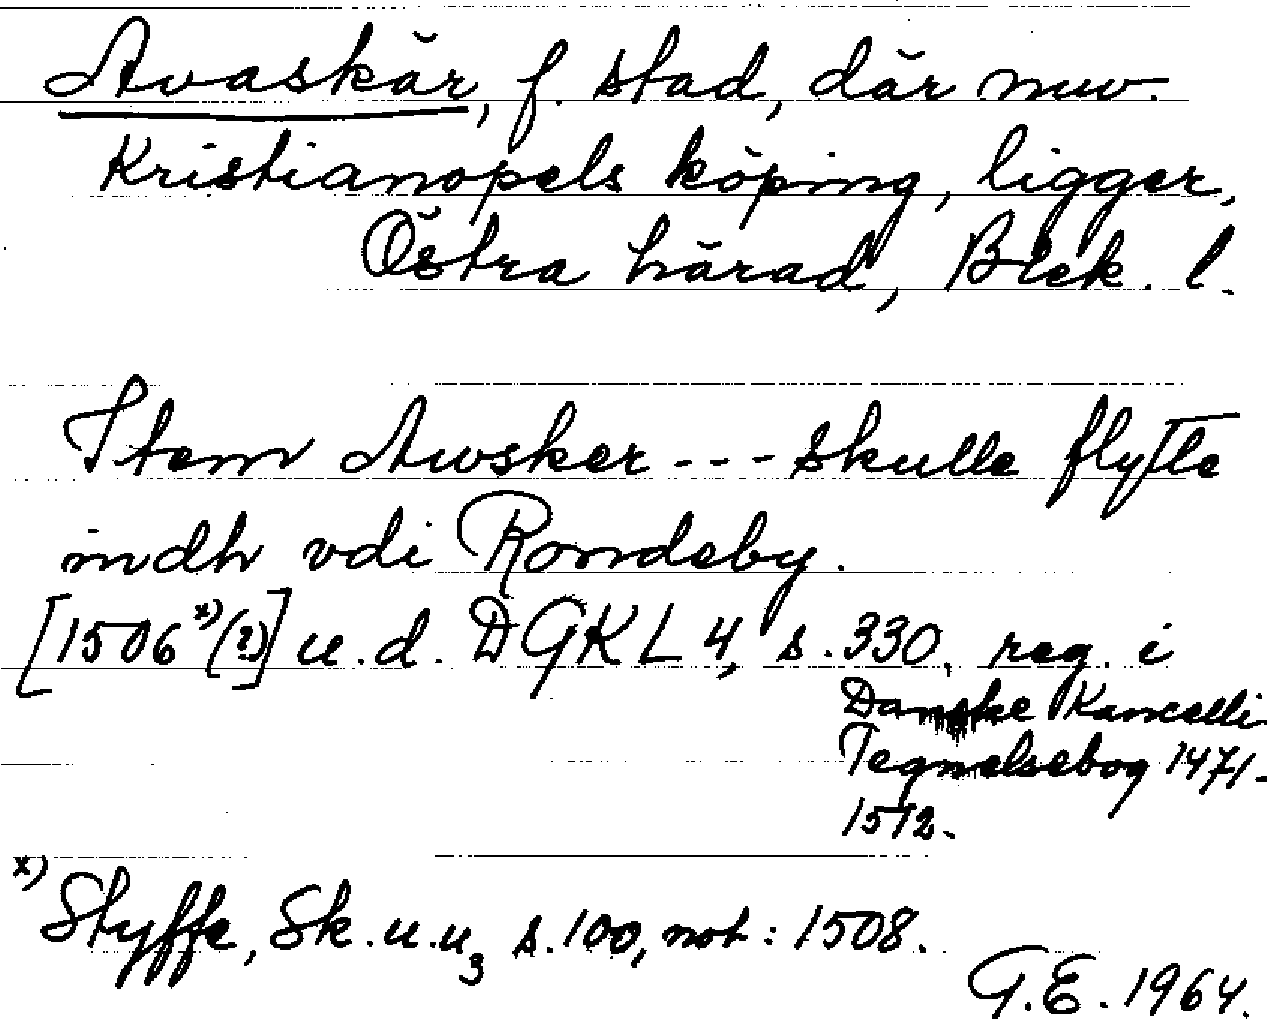 Avaskär, f. stad, där nuv.
Kristianopels köping, ligger,
Östra härad, Blek. l.
Item Awsker --- skulle flytte
indh vdi Rondeby.
[1506 x) (?)] u.d. DGKL 4, s. 330, reg. i
Danske Kancelli
Tegnelsebog 1471-
1512.
x) Styffe, Sk.u.u3 s. 100, not: 1508.
G.E. 1964.